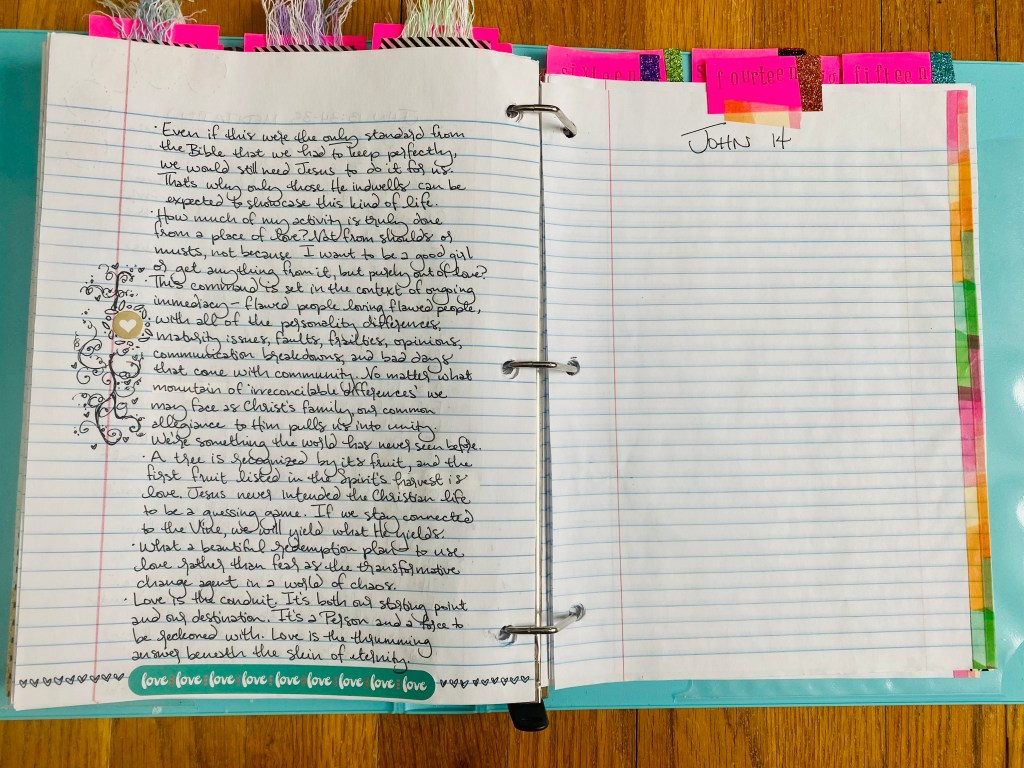 sixteen
fourteen
fifteen
· Even if this were the only standard from
the Bible that we had to keep perfectly,
we would still need Jesus to do it for us.
That's why only those He indwells can be
expected to showcase this kind of life.
· How much of my activity is truly done
from a place of love? Not from shoulds or
musts, not because I want to be a good girl
or get anything from it, but purely out of love?
· This command is set in the context of ongoing
immediacy – flawed people loving flawed people,
with all of the personality differences,
maturity issues, faults, frailties, opinions,
communication breakdowns, and bad days
that come with community. No matter what
mountain of 'irreconcilable differences' we
may face as Christ's family, our common
allegiance to Him pulls us into unity.
We're something the world has never seen before.
· A tree is recognized by its fruit, and the
first fruit listed in the Spirit's harvest is
love. Jesus never intended the Christian life
to be a guessing game. If we stay connected
to the Vine, we will yield what He yields.
· What a beautiful redemption plan – to use
love rather than fear as the transformative
change agent in a world of chaos.
· Love is the conduit. It's both our starting point
and our destination. It's a Person and a force to
be reckoned with. Love is the thrumming
answer beneath the skin of eternity.
love love love love love love love love love
JOHN 14